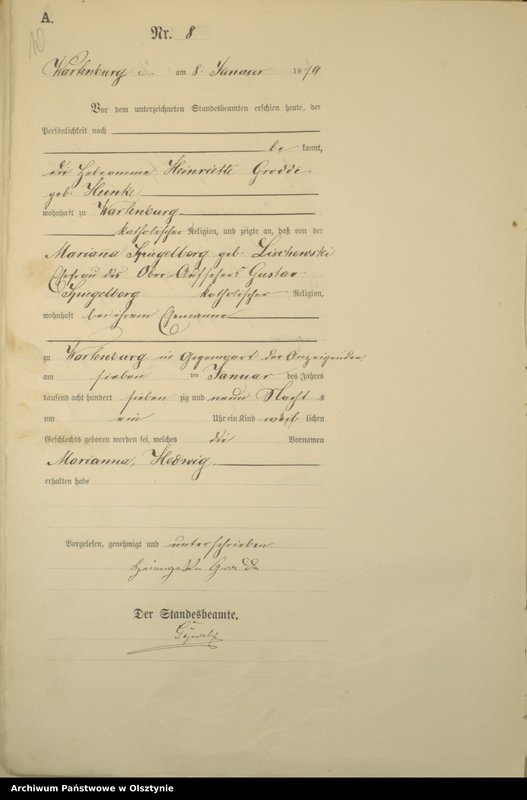 A.
10
Nr. 8
Wartenburg am 8. Januar 1879
Vor dem unterzeichneten Standesbeamten erschien heute, der
Persönlichkeit nach
be kannt,
die Hebeamme Heinriette Grodde
geb. Heinke
wohnhaft zu Wartenburg
katholischer Religion, und zeigte an, daß von der
Mariana Spiegelberg geb. Lischewski
Ehefrau des Ober Aufsehers Gustav
Spiegelberg katholischer Religion,
wohnhaft bei ihrem Ehemanne
zu Wartenburg in Gegenwart der Anzeigenden
am sieben ten Januar des Jahres
tausend acht hundert sieben zig und neun Nacht s
um ein Uhr ein Kind weib lichen
Geschlechts geboren worden sei, welches die Vornamen
Marianna, Hedwig
erhalten habe
Vorgelesen, genehmigt und unterschrieben.
Grodde
Der Standesbeamte.
Archiwum Państwowe w Olsztynie